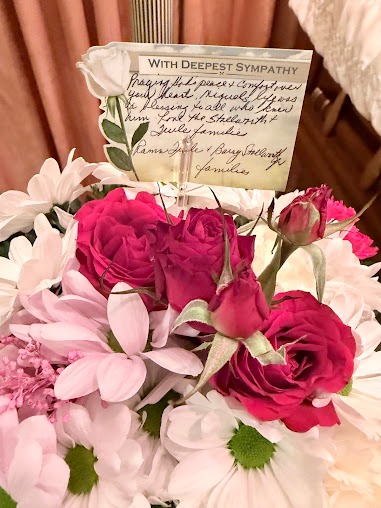 WITH DEEPEST SYMPATHY
Praying God's peace & comfort over
your heart, Miguel. He was
a blessing to all who knew
him. Love the Stallworth &
Teule families
& Barry Stallworth
families